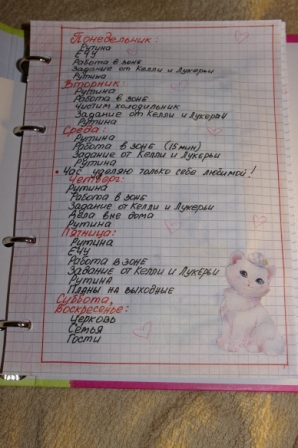 Понедельник
Рутина
ЕЧУ
Работа в зоне
Задание от Келли и Лукерьи
Рутина
Вторник
Рутина
Работа в зоне
Чистим холодильник
Задание от Келли и Лукерьи
Рутина
Среда:
Рутина
Работа в зоне (15 мин)
Задание от Келли и Лукерьи
Рутина
• Час уделяю только себе любимой!
Четверг:
Рутина
Работа в зоне
Задание от Келли и Лукерьи
Дела вне дома
Рутина
Пятница:
Рутина
ЕЧУ
Работа в зоне
Задание от Келли и Лукерьи
Рутина
Планы на выходные
Суббота,
Воскресенье:
Церковь
Семья
Гости